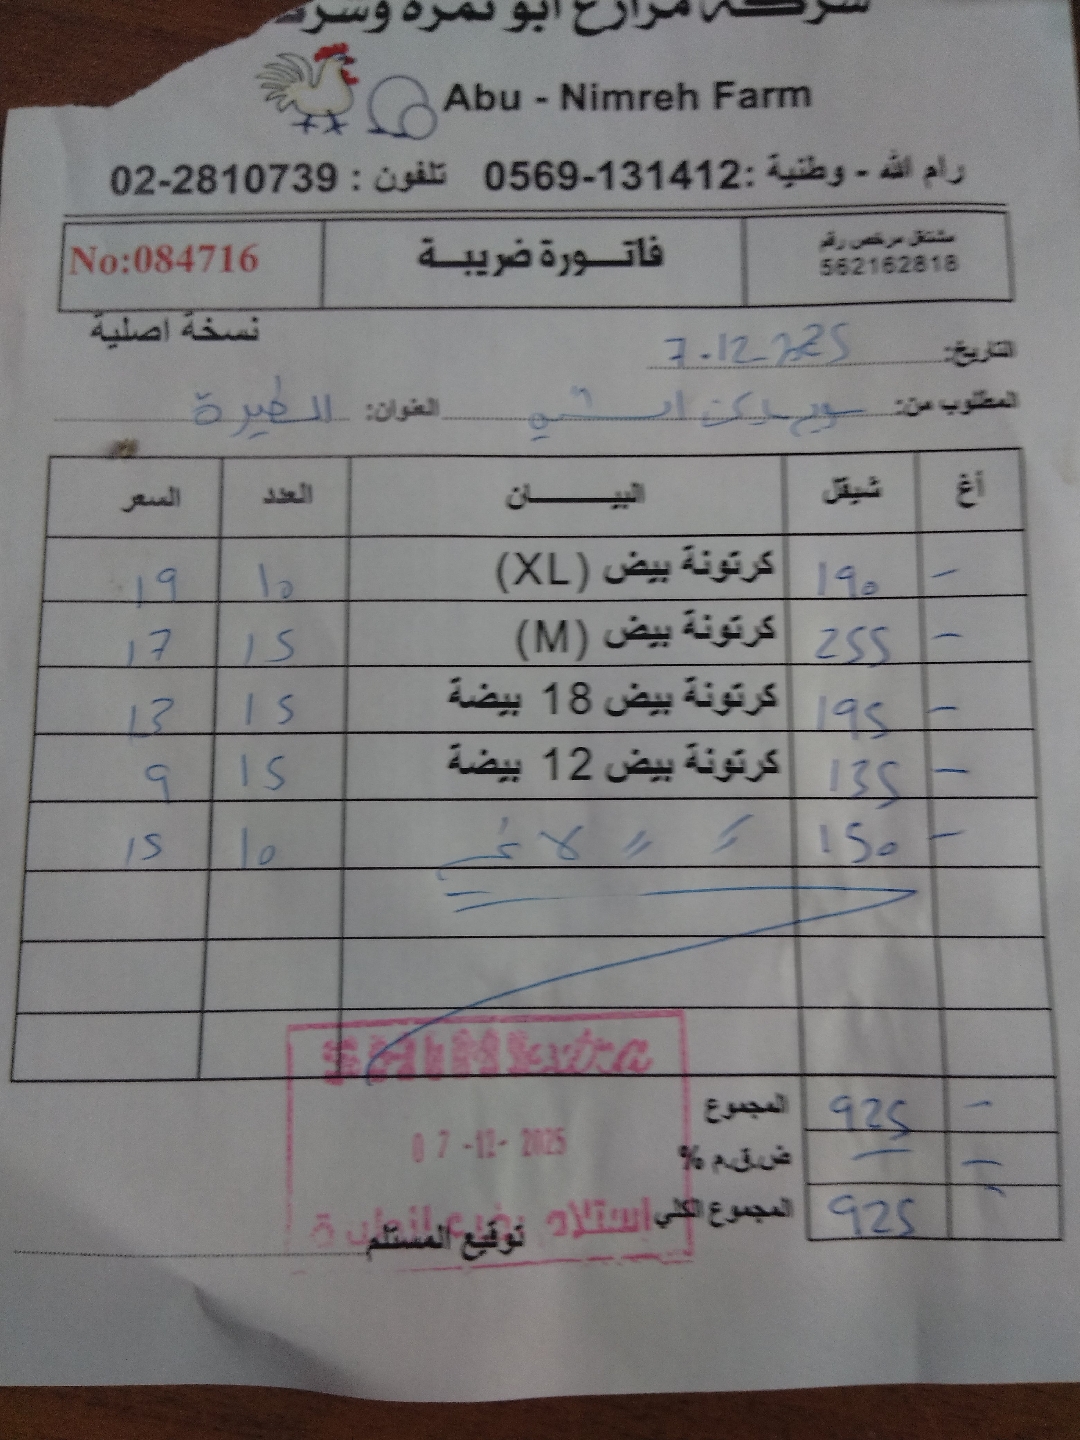 شركة مزارع ابو نمرة وشرك
Abu - Nimreh Farm
رام الله - وطنية :0569-131412 تلفون : 02-2810739
مشتغل مرخص رقم
562162818
فاتـــورة ضريبـــة
No:084716
نسخة اصلية
التاريخ: 7.12.2025
المطلوب من: العنوان: الطيرة
أغ شيقل البيـــــــان العدد السعر
- 190 كرتونة بيض (XL) 10 19
- 255 كرتونة بيض (M) 15 17
- 195 كرتونة بيض 18 بيضة 15 13
- 135 كرتونة بيض 12 بيضة 15 9
- 150 〃 〃 10 15
المجموع 925 -
ض.ق.م % - -
المجموع الكلي 925 -
extra
07-12-2025
استلام
توقيع المستلم